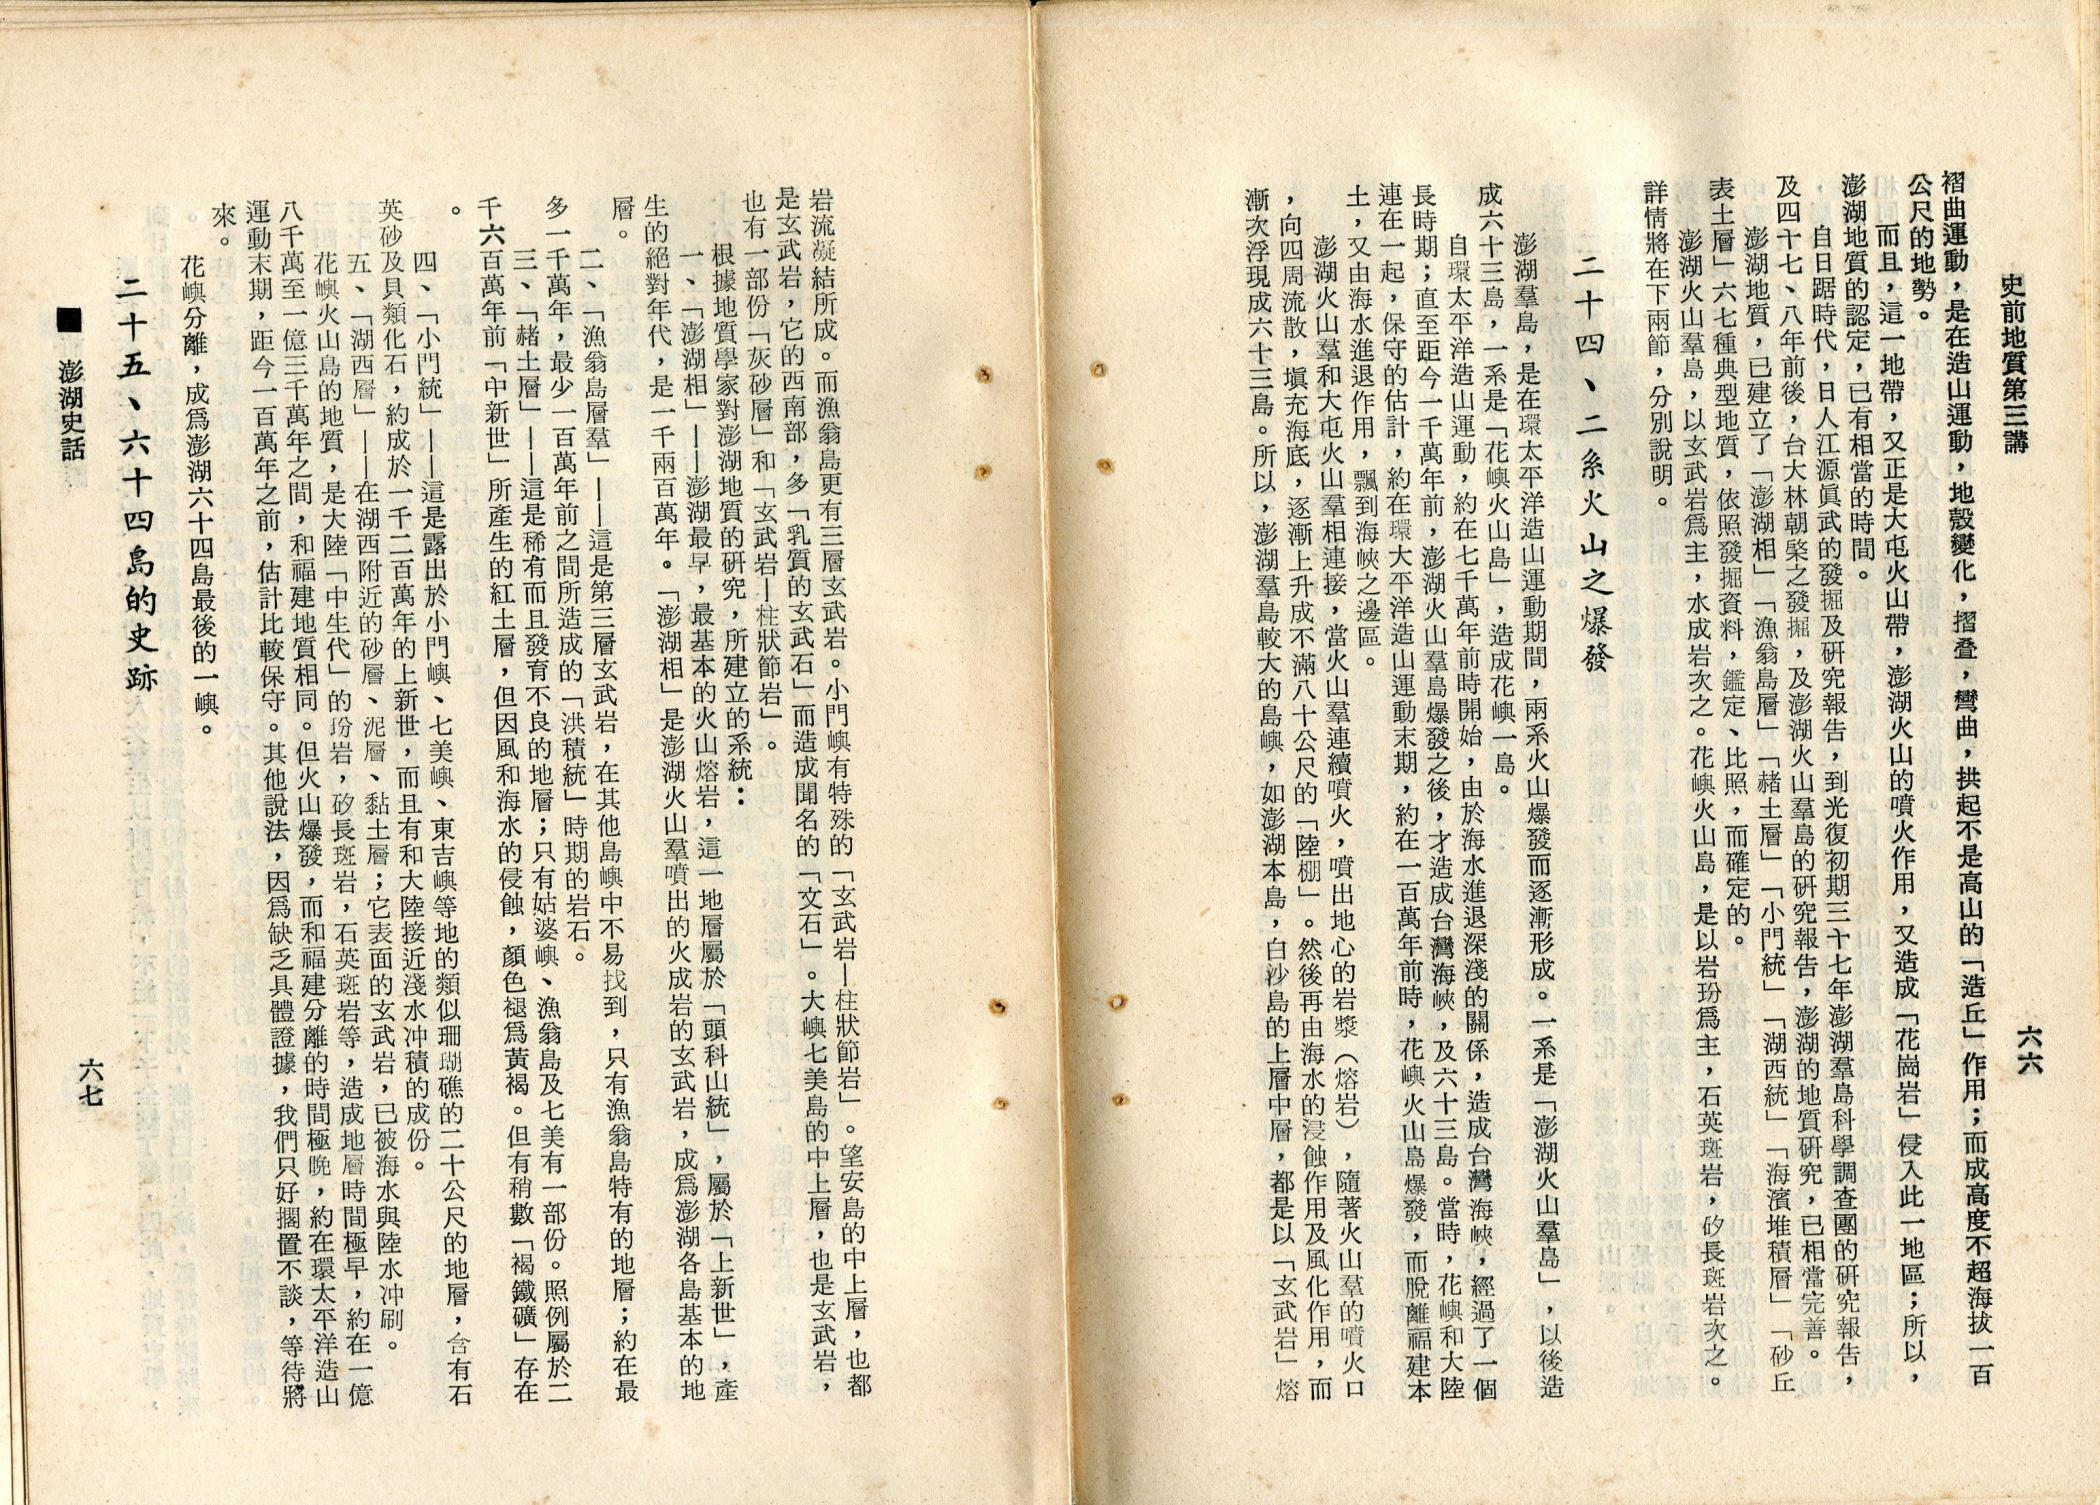 史前地質第三講
六六
褶曲運動，是在造山運動，地殼變化，摺叠，彎曲，拱起不是高山的「造丘」作用；而成高度不超海拔一百
公尺的地勢。
而且，這一地帶，又正是大屯火山帶，澎湖火山的噴火作用，又造成「花崗岩」侵入此一地區；所以，
澎湖地質的認定，已有相當的時間。
自日踞時代，日人江源眞武的發掘及硏究報告，到光復初期三十七年澎湖羣島科學調查團的硏究報告，
及四十七、八年前後，台大林朝棨之發掘，及澎湖火山羣島的硏究報告，澎湖的地質硏究，已相當完善。
澎湖地質，已建立了「澎湖相」「漁翁島層」「赭土層」「小門統」「湖西統」「海濱堆積層」「砂丘
表土層」六七種典型地質，依照發掘資料，鑑定、比照，而確定的。
澎湖火山羣島，以玄武岩爲主，水成岩次之。花嶼火山島，是以岩玢爲主，石英斑岩，矽長斑岩次之。
詳情將在下兩節，分別說明。
二十四、二系火山之爆發
澎湖羣島，是在環太平洋造山運動期間，兩系火山爆發而逐漸形成。一系是「澎湖火山羣島」，以後造
成六十三島，一系是「花嶼火山島」，造成花嶼一島。
自環太平洋造山運動，約在七千萬年前時開始，由於海水進退深淺的關係，造成台灣海峽，經過了一個
長時期；直至距今一千萬年前，澎湖火山羣島爆發之後，才造成台灣海峽，及六十三島。當時，花嶼和大陸
連在一起，保守的估計，約在環大平洋造山運動末期，約在一百萬年前時，花嶼火山島爆發，而脫離福建本
土，又由海水進退作用，飄到海峽之邊區。
澎湖火山羣和大屯火山羣相連接，當火山羣連續噴火，噴出地心的岩漿（熔岩），隨著火山羣的噴火口
，向四周流散，塡充海底，逐漸上升成不滿八十公尺的「陸棚」。然後再由海水的浸蝕作用及風化作用，而
漸次浮現成六十三島。所以，澎湖羣島較大的島嶼，如澎湖本島，白沙島的上層中層，都是以「玄武岩」熔
岩流凝結所成。而漁翁島更有三層玄武岩。小門嶼有特殊的「玄武岩—柱狀節岩」。望安島的中上層，也都
是玄武岩，它的西南部，多「乳質的玄武石」而造成聞名的「文石」。大嶼七美島的中上層，也是玄武岩，
也有一部份「灰砂層」和「玄武岩—柱狀節岩」。
根據地質學家對澎湖地質的硏究，所建立的系統：
一、「澎湖相」——澎湖最早，最基本的火山熔岩，這一地層屬於「頭科山統」，屬於「上新世」，產
生的絕對年代，是一千兩百萬年。「澎湖相」是澎湖火山羣噴出的火成岩的玄武岩，成爲澎湖各島基本的地
層。
二、「漁翁島層羣」——這是第三層玄武岩，在其他島嶼中不易找到，只有漁翁島特有的地層；約在最
多一千萬年，最少一百萬年前之間所造成的「洪積統」時期的岩石。
三、「赭土層」——這是稀有而且發育不良的地層；只有姑婆嶼、漁翁島及七美有一部份。照例屬於二
千六百萬年前「中新世」所產生的紅土層，但因風和海水的侵蝕，顏色褪爲黃褐。但有稍數「褐鐵礦」存在
。
四、「小門統」——這是露出於小門嶼、七美嶼、東吉嶼等地的類似珊瑚礁的二十公尺的地層，含有石
英砂及貝類化石，約成於一千二百萬年的上新世，而且有和大陸接近淺水冲積的成份。
五、「湖西層」——在湖西附近的砂層、泥層、黏土層；它表面的玄武岩，已被海水與陸水冲刷。
花嶼火山島的地質，是大陸「中生代」的玢岩，矽長斑岩，石英斑岩等，造成地層時間極早，約在一億
八千萬至一億三千萬年之間，和福建地質相同。但火山爆發，而和福建分離的時間極晚，約在環太平洋造山
運動末期，距今一百萬年之前，估計比較保守。其他說法，因爲缺乏具體證據，我們只好擱置不談，等待將
來。
花嶼分離，成爲澎湖六十四島最後的一嶼。
二十五、六十四島的史跡
■ 澎湖史話
六七